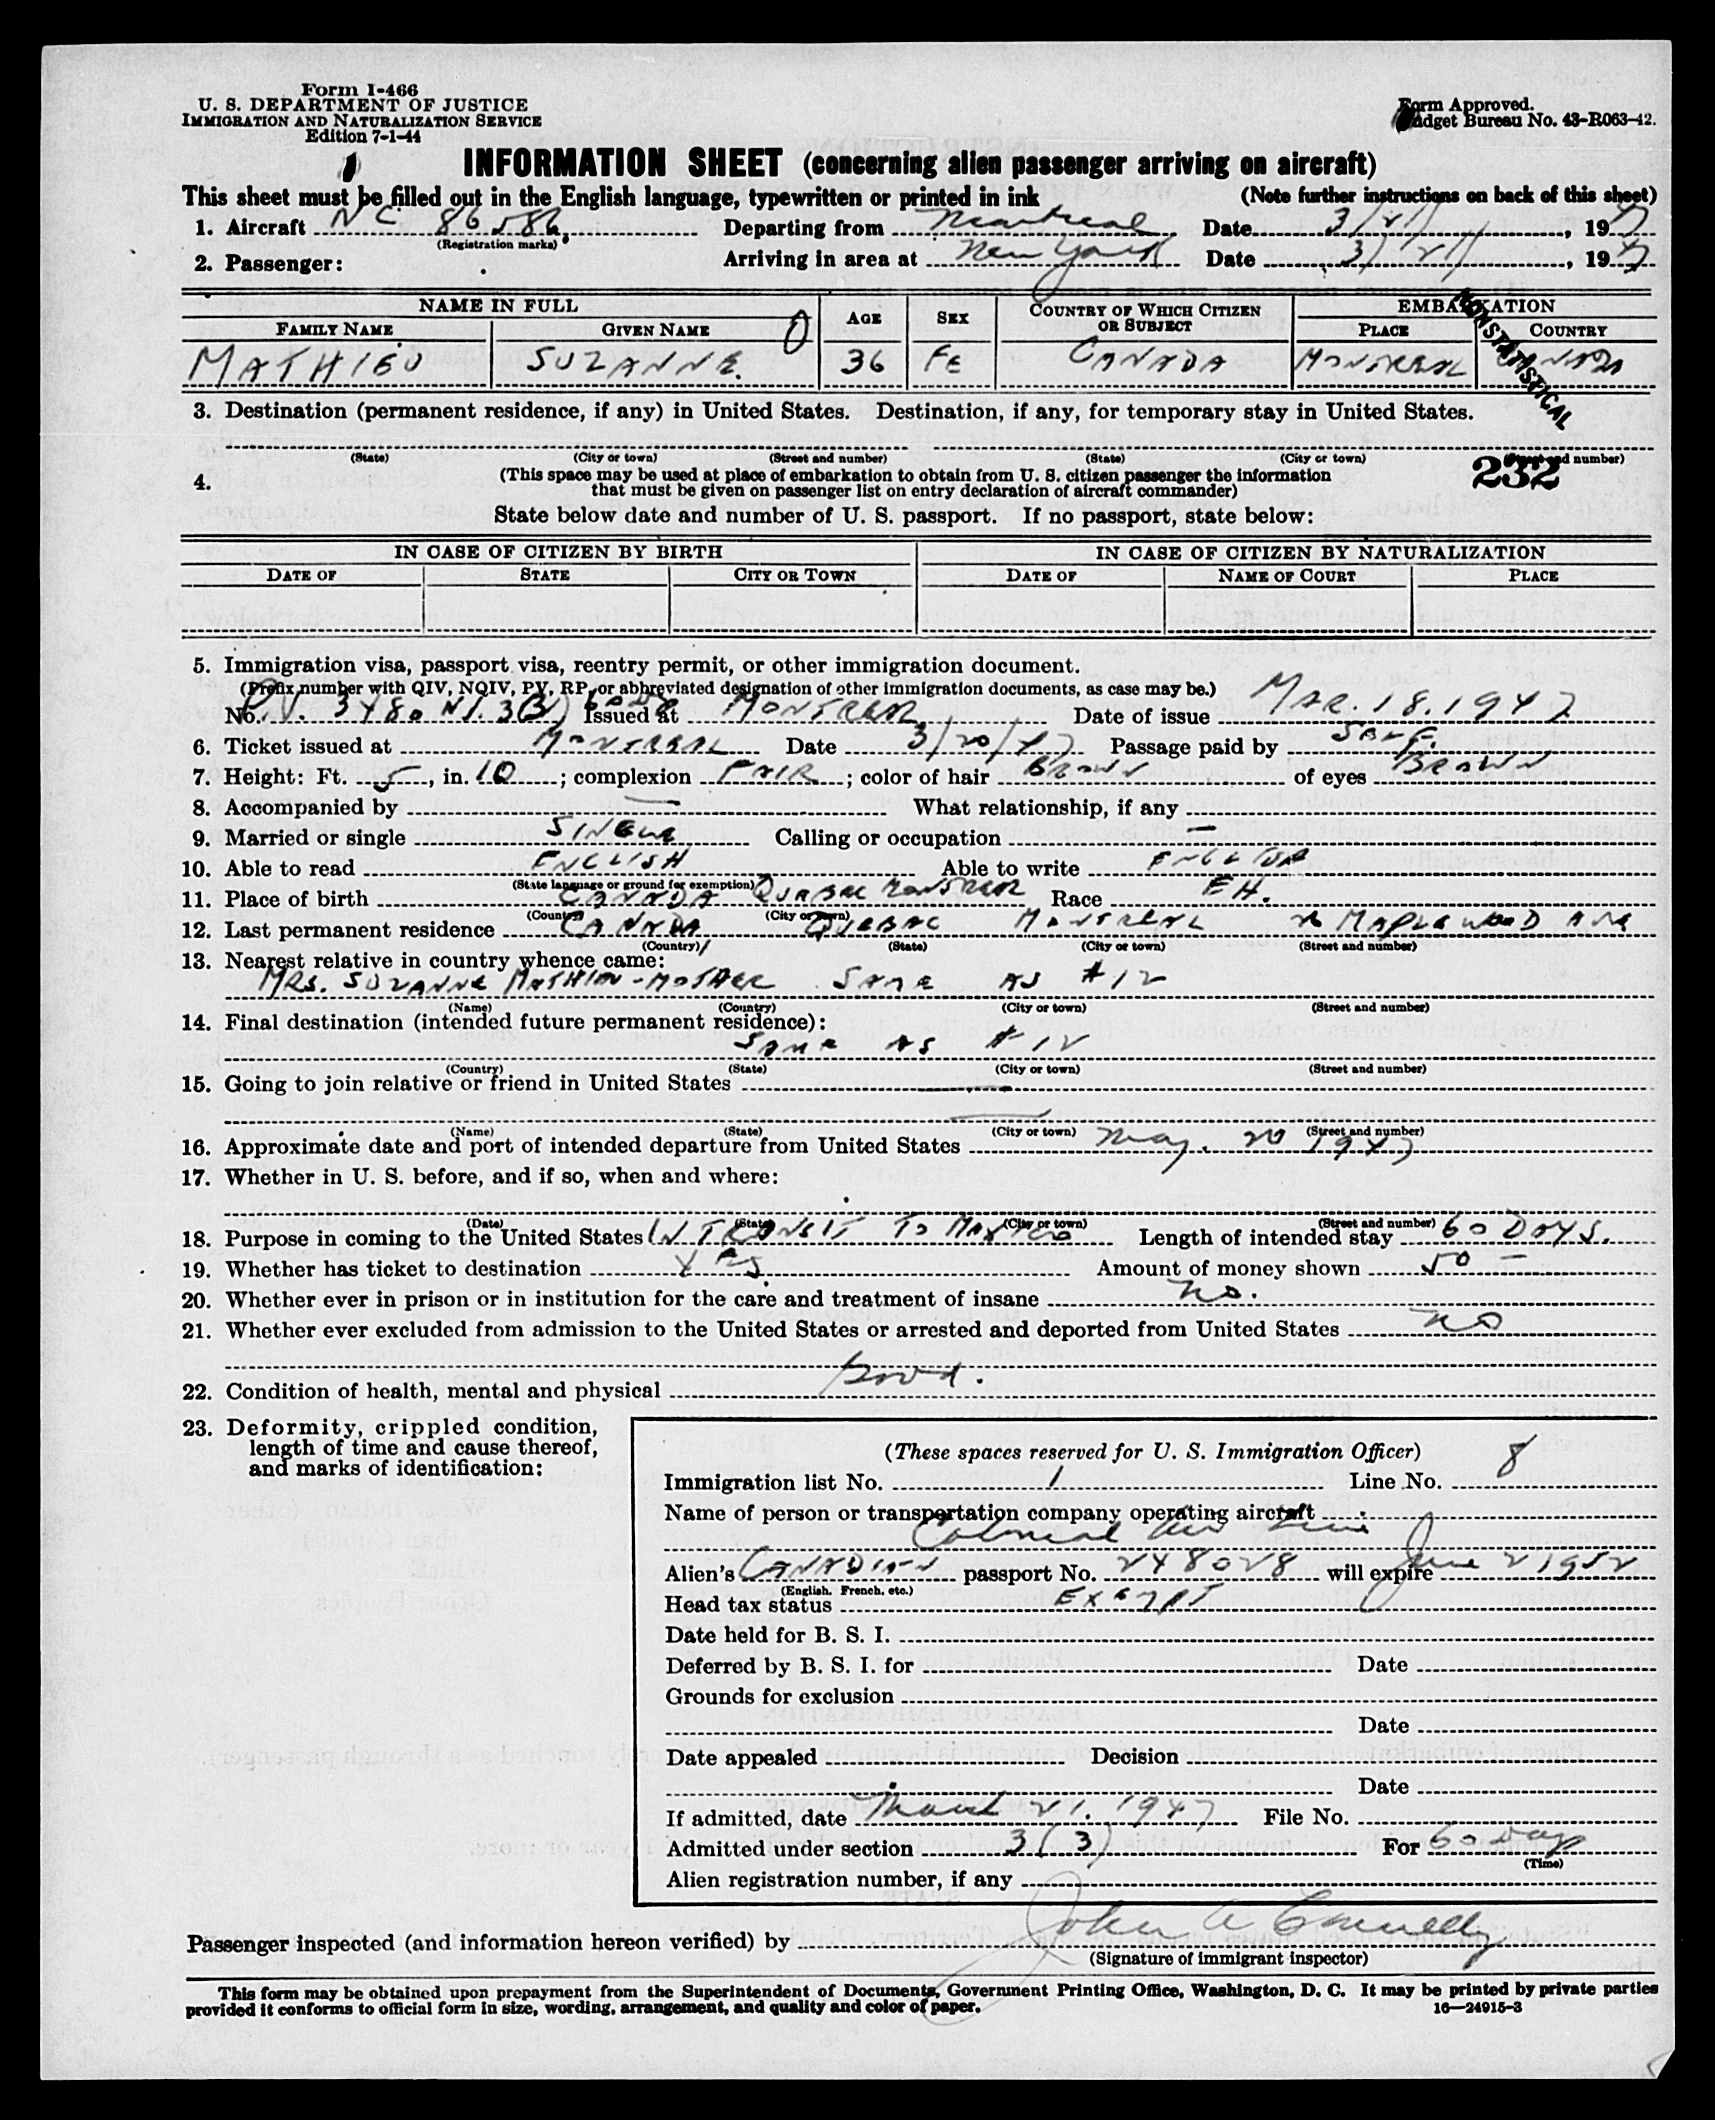 Form I-466
U. S. DEPARTMENT OF JUSTICE
IMMIGRATION AND NATURALIZATION SERVICE
Edition 7-1-44
Form Approved.
Budget Bureau No. 43-R063-42.
INFORMATION SHEET (concerning alien passenger arriving on aircraft)
This sheet must be filled out in the English language, typewritten or printed in ink (Note further instructions on back of this sheet)
1. Aircraft NC 86586 Departing from Montreal Date 3/21/, 1947
(Registration marks)
2. Passenger: Arriving in area at New York Date 3/21/, 1947
NAME IN FULL AGE SEX COUNTRY OF WHICH CITIZEN OR SUBJECT EMBARKATION
FAMILY NAME GIVEN NAME PLACE COUNTRY
MATHIEU SUZANNE 36 FE CANADA MONTREAL CANADA
NONSTATISTICAL
3. Destination (permanent residence, if any) in United States. Destination, if any, for temporary stay in United States.
(State) (City or town) (Street and number) (State) (City or town) (Street and number)
232
4. (This space may be used at place of embarkation to obtain from U. S. citizen passenger the information
that must be given on passenger list on entry declaration of aircraft commander)
State below date and number of U. S. passport. If no passport, state below:
IN CASE OF CITIZEN BY BIRTH IN CASE OF CITIZEN BY NATURALIZATION
DATE OF STATE CITY OR TOWN DATE OF NAME OF COURT PLACE
5. Immigration visa, passport visa, reentry permit, or other immigration document.
(Prefix number with QIV, NQIV, PV, RP, or abbreviated designation of other immigration documents, as case may be.)
No. P.V. 3480 Issued at MONTREAL Date of issue MAR. 18. 1947
6. Ticket issued at MONTREAL Date 3/20/47 Passage paid by SELF.
7. Height: Ft. 5, in. 10; complexion FAIR; color of hair BROWN of eyes BROWN
8. Accompanied by — What relationship, if any
9. Married or single SINGLE Calling or occupation —
10. Able to read ENGLISH Able to write ENGLISH
(State language or ground for exemption)
11. Place of birth CANADA QUEBEC MONTREAL Race FH.
(Country) (City or town)
12. Last permanent residence CANADA QUEBEC MONTREAL MAPLEWOOD AVE
(Country) (State) (City or town) (Street and number)
13. Nearest relative in country whence came:
MRS. SUZANNE MATHIEU - MOTHER SAME AS #12
(Name) (Country) (City or town) (Street and number)
14. Final destination (intended future permanent residence):
SAME AS #12
(Country) (State) (City or town) (Street and number)
15. Going to join relative or friend in United States —
—
(Name) (State) (City or town) (Street and number)
16. Approximate date and port of intended departure from United States May. 20 1947
17. Whether in U. S. before, and if so, when and where:
(Date) (State) (City or town) (Street and number)
18. Purpose in coming to the United States IN TRANSIT TO MEXICO Length of intended stay 60 DAYS.
19. Whether has ticket to destination YES Amount of money shown 50 —
20. Whether ever in prison or in institution for the care and treatment of insane No.
21. Whether ever excluded from admission to the United States or arrested and deported from United States no
22. Condition of health, mental and physical Good.
23. Deformity, crippled condition,
length of time and cause thereof,
and marks of identification:
(These spaces reserved for U. S. Immigration Officer)
Immigration list No. 1 Line No. 8
Name of person or transportation company operating aircraft
Colonial Air Line
Alien's CANADIAN passport No. 248028 will expire June 2 1952
(English, French, etc.)
Head tax status EXEMPT
Date held for B. S. I.
Deferred by B. S. I. for Date
Grounds for exclusion
Date
Date appealed Decision
Date
If admitted, date March 21. 1947 File No.
Admitted under section 3(3) For 60 days
(Time)
Alien registration number, if any
Passenger inspected (and information hereon verified) by John A Connelly
(Signature of immigrant inspector)
This form may be obtained upon prepayment from the Superintendent of Documents, Government Printing Office, Washington, D. C. It may be printed by private parties
provided it conforms to official form in size, wording, arrangement, and quality and color of paper. 16—24915-3